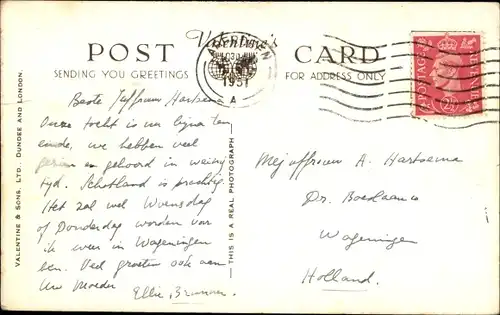 Valentine's
POST CARD
SENDING YOU GREETINGS
FOR ADDRESS ONLY
1951
A
POSTAGE
REVENUE
VALENTINE & SONS, LTD., DUNDEE AND LONDON.
THIS IS A REAL PHOTOGRAPH
Beste Juffrouw Hartsema
Onze tocht is nu bijna ten
einde, we hebben veel
gezien en gehoord in weinig
tijd. Schotland is prachtig.
Het zal wel Woensdag
of Donderdag worden voor
ik weer in Wageningen
ben. Veel groeten ook aan
Uw Moeder
Ellie
Mejuffrouw A. Hartsema
Dr.
Wageningen
Holland.